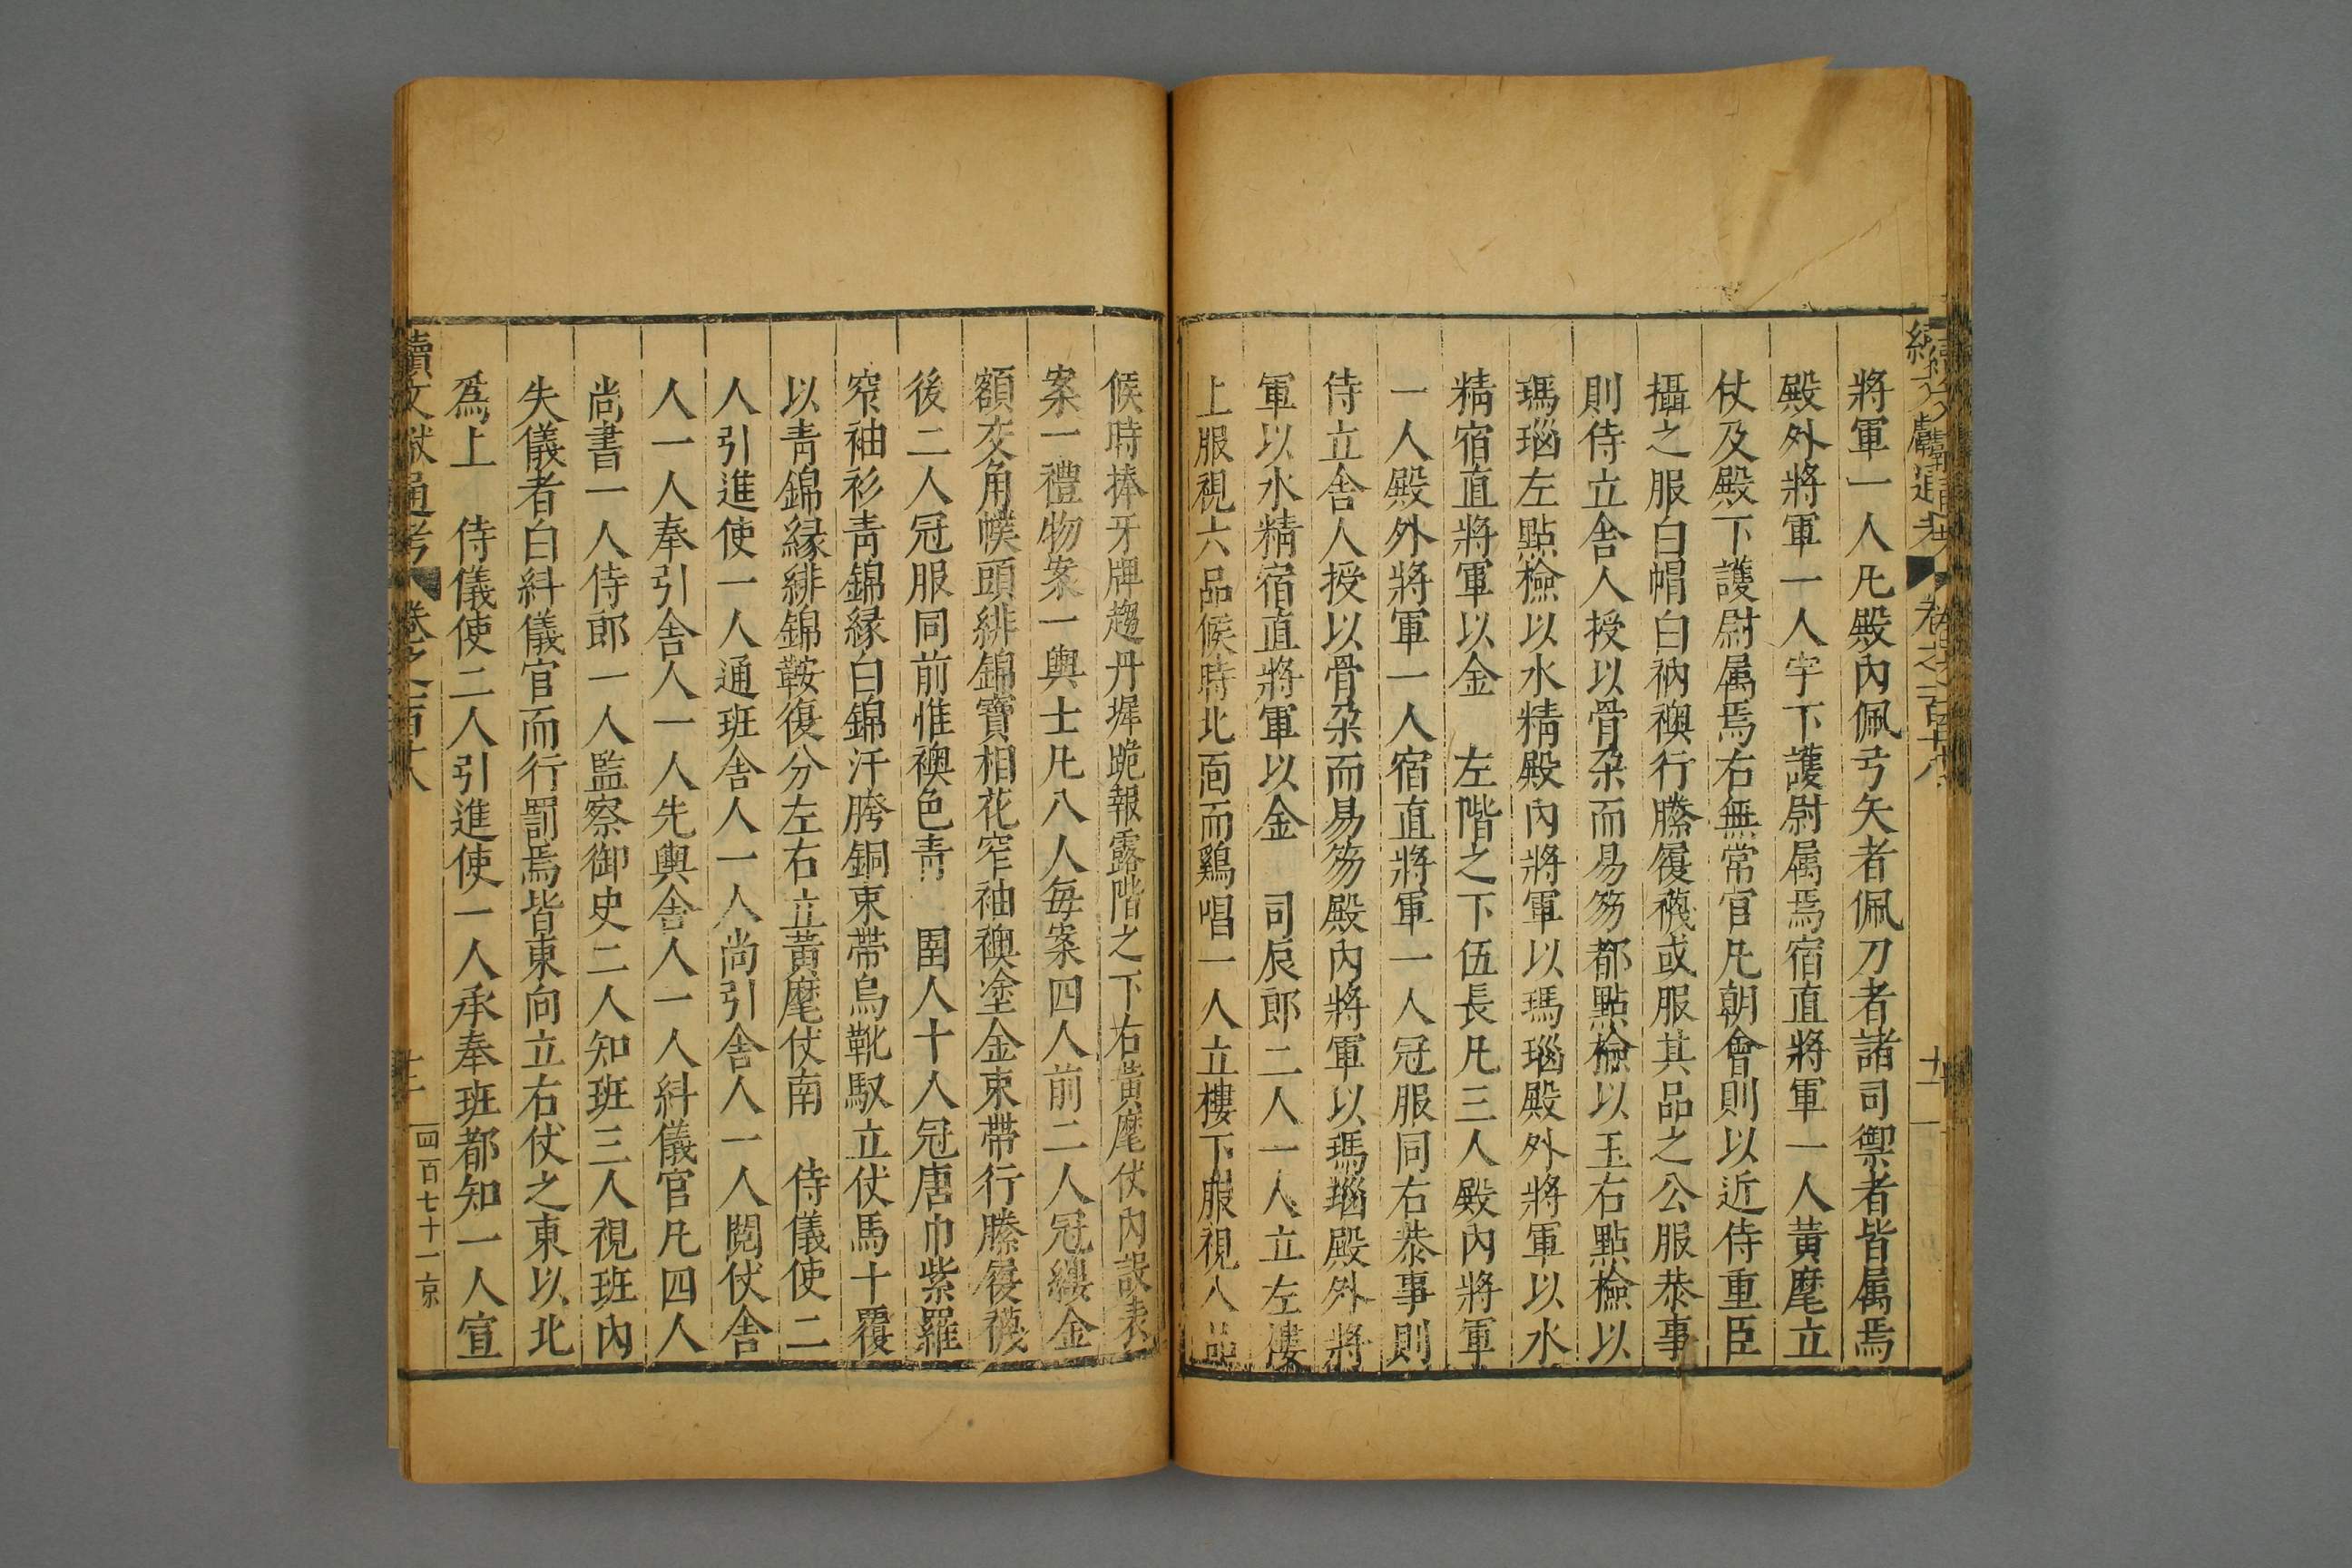 續文獻通考 卷之一百十八 十一
將軍一人凡殿內佩弓矢者佩刀者諸司禦者皆属焉
殿外將軍一人宇下護尉属焉宿直將軍一人黃麾立
仗及殿下護尉属焉右無常官凡朝會則以近侍重臣
攝之服白帽白衲襖行縢履襪或服其品之公服恭事
則侍立舍人授以骨朶而易笏都點檢以玉右點檢以
瑪瑙左點檢以水精殿內將軍以瑪瑙殿外將軍以水
精宿直將軍以金　左階之下伍長凡三人殿內將軍
一人殿外將軍一人宿直將軍一人冠服同右恭事則
侍立舍人授以骨朶而易笏殿內將軍以瑪瑙殿外將
軍以水精宿直將軍以金　司辰郎二人一人立左樓
上服視六品候時北面而鷄唱一人立樓下服視八品
候時捧牙牌趨丹墀跪報露階之下右黃麾仗內設表
案一禮物案一輿士凡八人每案四人前二人冠縷金
額交角幞頭緋錦寶相花窄袖襖塗金束帶行縢履襪
後二人冠服同前惟襖色青　圉人十人冠唐巾紫羅
窄袖衫青錦緣白錦汗胯銅束帶烏靴馭立仗馬十覆
以青錦緣緋錦鞍復分左右立黃麾仗南　侍儀使二
人引進使一人通班舍人一人尚引舍人一人閱仗舍
人一人奉引舍人一人先輿舍人一人糾儀官凡四人
尚書一人侍郎一人監察御史二人知班三人視班內
失儀者白糾儀官而行罰焉皆東向立右仗之東以北
爲上　侍儀使二人引進使一人承奉班都知一人宣
續文獻通考 卷之一百十八 十二 四百七十一 京